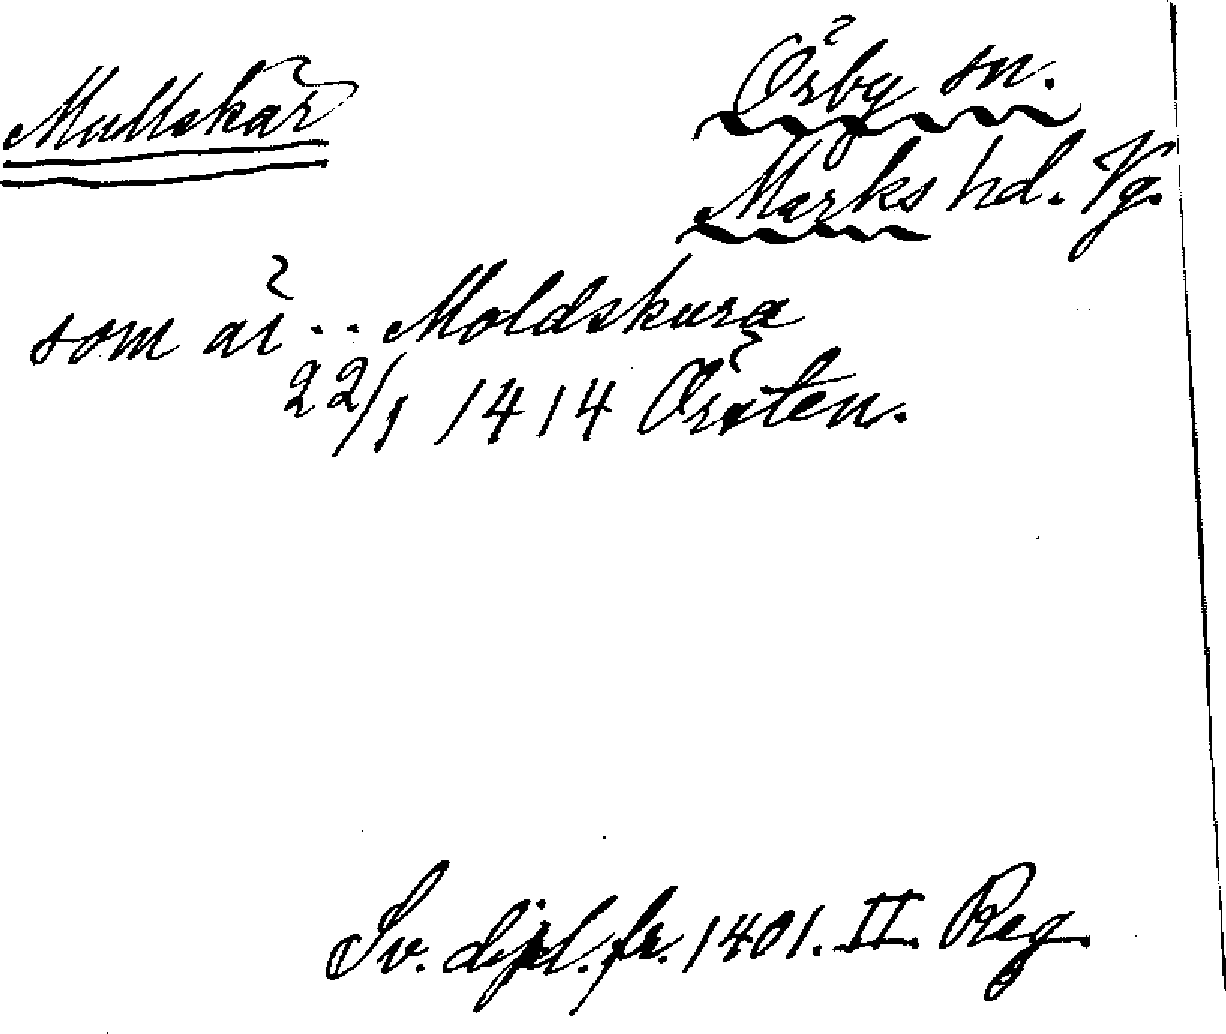 Mullskär
Örby sn.
Marks hd. Vg.
som är .. Moldskura
22/1 1414 Örsten.
Sv. dipl. fr. 1401. II. Reg.